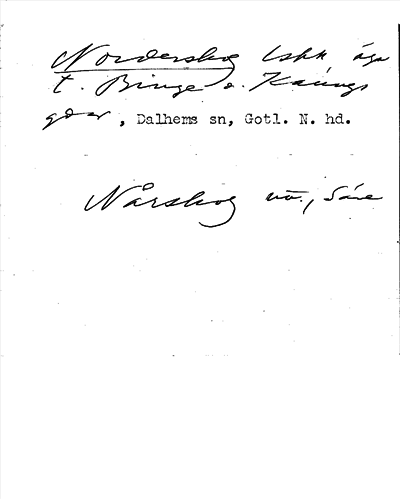 Norderskog lskk, äga
t. Binge o. Kaungs
gdar, Dalhems sn, Gotl. N. hd.
Nårskog